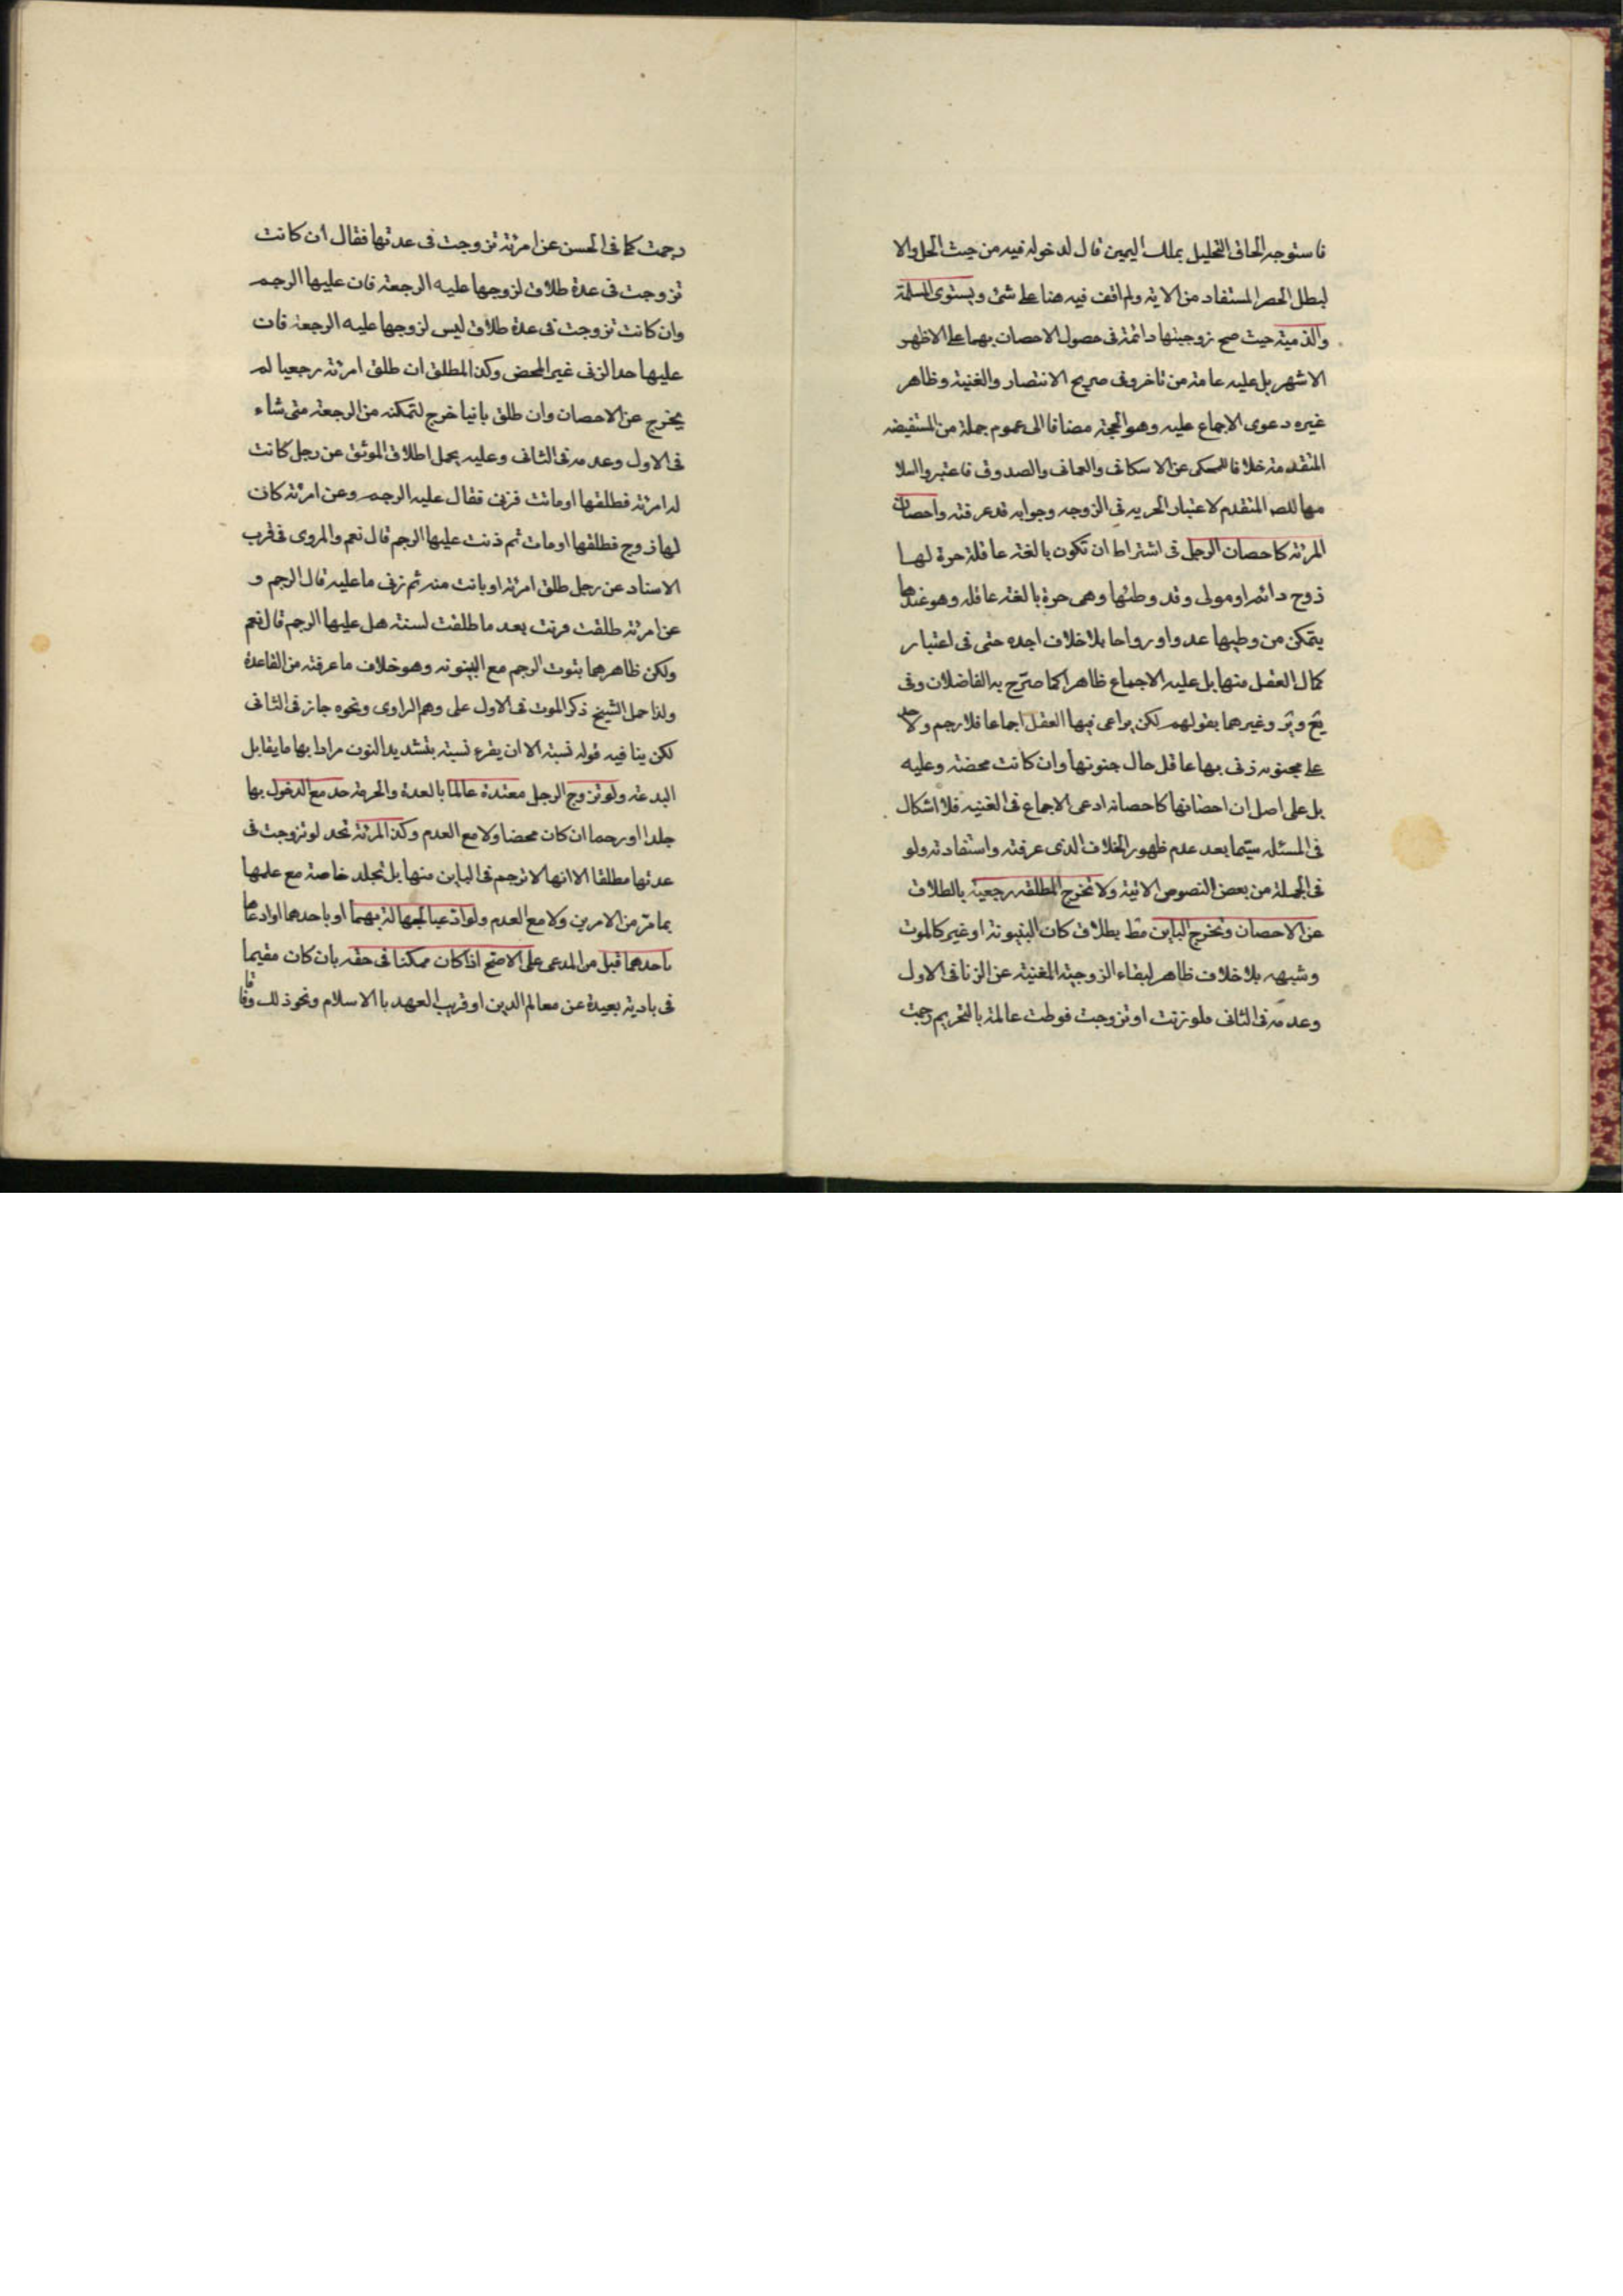 فاستوجه الحاق التحليل بملك اليمين قال لدخوله فيه من حيث الحل والا
لبطل الحصر المستفاد من الاية ولم اقف فيه هنا على شئ ويستوى المسلمة
والذمية حيث صح زوجيتها دائمة فى حصول الاحصان بهما على الاظهر
الاشهر بل عليه عامة من تاخر وفى صريح الانتصار والغنية وظاهر
غيره دعوى الاجماع عليه وهو الحجة مضافا الى عموم جملة من المستفيضة
المتقدمة خلافا للمحكى عن الاسكافى والعمانى والصدوق فاعتبروا اسلا
مها للصـ المتقدم لاعتبار الحريه فى الزوجه وجوابه قد عرفته واحصان
المرئة كاحصان الرجل فى اشتراط ان تكون بالغة عاقلة حرة لها
زوج دائم او مولى وقد وطئها وهى حرة بالغة عاقله وهو عندها
يتمكن من وطيها غدوا ورواحا بلا خلاف اجده حتى فى اعتبار
كمال العقل منها بل عليه الاجماع ظاهرا كما صرّح به الفاضلان وفى
يع وير وغيرهما بقولهم لكن يراعى فيها العقل اجماعا فلا رجم ولا حد
على مجنونه زنى بها عاقل حال جنونها وان كانت محصنة وعليه
بل على اصل ان احصانها كاحصانه ادعى الاجماع فى الغنيه فلا اشكال
فى المسئله سيّما بعد عدم ظهور الخلاف الذى عرفته واستفادته ولو
فى الجملة من بعض النصوص الاتية ولا تخرج المطلقه رجعية بالطلاق
عن الاحصان وتخرج الباين مط بطلاق كان البينونة او غيره كالموت
وشبهه بلا خلاف ظاهر لبقاء الزوجيّة المغنية عن الزنا فى الاول
وعدمه فى الثانى فلو زنت او تزوجت فوطئت عالمة بالتحريم رجمت
رجمت كما فى الحسن عن امرئة تزوجت فى عدتها فقال ان كانت
تزوجت فى عدة طلاق لزوجها عليه الرجعة فان عليها الرجم
وان كانت تزوجت فى عدة طلاق ليس لزوجها عليه الرجعة فان
عليها حد الزنى غير المحصن وكذا المطلق ان طلق امرئة رجعيا لم
يخرج عن الاحصان وان طلق بائنا خرج لتمكنه من الرجعة متى شاء
فى الاول وعدمه فى الثانى وعليه يحمل اطلاق الموثق عن رجل كانت
له امرئة فطلقها او ماتت فزنى فقال عليه الرجم وعن امرئة كان
لها زوج فطلقها او مات ثم زنت عليها الرجم قال نعم والمروى فى قرب
الاسناد عن رجل طلق امرئة او بانت منه ثم زنى ما عليه قال الرجم و
عن امرئة طلقت فزنت بعد ما طلقت لسنة هل عليها الرجم قال نعم
ولكن ظاهرهما بثبوت الرجم مع البينونه وهو خلاف ما عرفته من القاعدة
ولذا حمل الشيخ ذكر الموت فى الاول على وهم الراوى ونحوه جاز فى الثانى
لكن ينافيه قوله نسبة الا ان يقرء نسبة بتشديد النون مرادا بها ما يقابل
البدعة ولو تزوج الرجل معتدة عالما بالعدة والحرمة حد مع الدخول بها
جلدا او رجما ان كان محصنا ولا مع العدم وكذا المرئة تحد لو تزوجت فى
عدتها مطلقا الا انها لا ترجم فى الباين منها بل تجلد خاصة مع علمها
بما مرّ من الامرين ولا مع العدم ولو ادّعيا الجهالة بهما او باحدهما او ادعاها
باحدهما قبل من المدعى على الاصّح اذا كان ممكنا فى حقه بان كان مقيما
فى بادية بعيدة عن معالم الدين او قريب العهد بالاسلام ونحو ذلك وفاقا